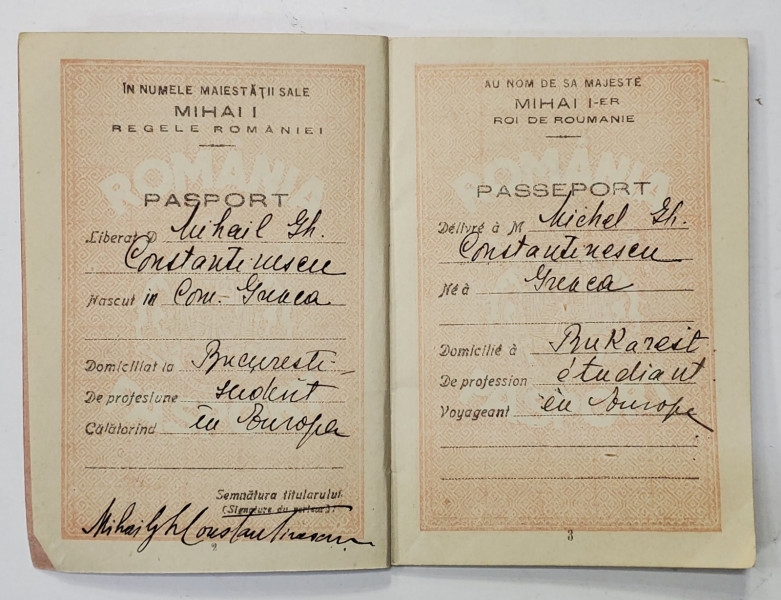 ÎN NUMELE MAIESTĂȚII SALE
MIHAI I
REGELE ROMÂNIEI
ROMÂNIA
PASPORT
Liberat D Mihail Gh.
Constantinescu
Nascut in Com. Greaca
Domiciliat la Bucuresti
De profesiune student
Călătorind în Europa
Semnătura titularului
(Signature du porteur)
Mihail Gh Constantinescu
AU NOM DE SA MAJESTÉ
MIHAI I-ER
ROI DE ROUMANIE
ROMÂNIA
PASSEPORT
Délivré à M Michel Gh.
Constantinescu
Né à Greaca
Domicilié à Bukarest
De profession étudiant
Voyageant en Europe
3